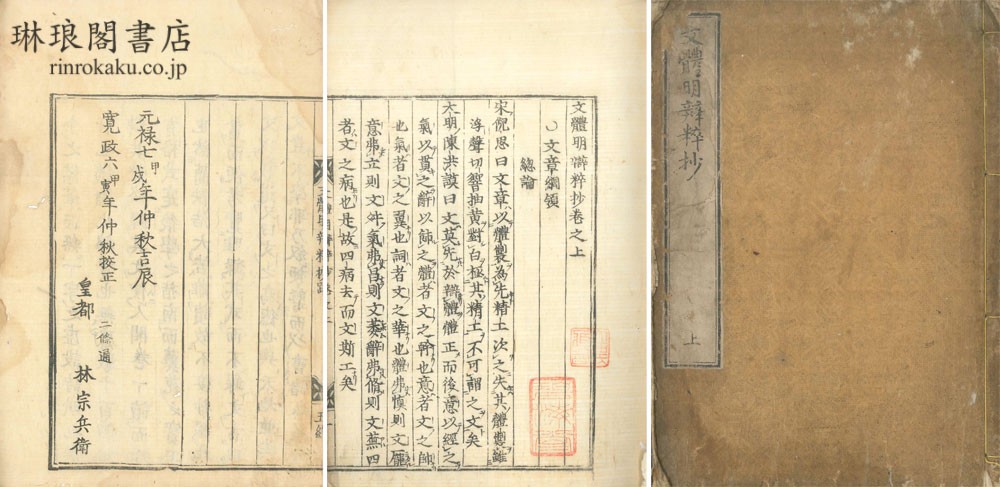 琳琅閣書店
rinrokaku.co.jp
元禄七甲戌年仲秋吉辰
寛政六甲寅年仲秋校正
皇都 二條通 林宗兵衛
文體明辯粹抄卷之上
○文章綱領
總論
宋倪思曰文章以體製為先精工次之失其體製雖
浮聲切響抽黃對白極其精工不可謂之文矣
大明陳洪謨曰文莫先於辯體體正而後意以經之
氣以貫之辭以飾之體者文之幹也意者文之帥
也氣者文之翼也詞者文之華也體弗慎則文龐
意弗立則文舛氣弗昌則文萎辭弗脩則文蕪四
者文之病也是故四病去而文斯工矣
文體明辯粹抄
上